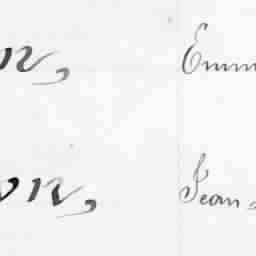 n, Emm
on, Jean